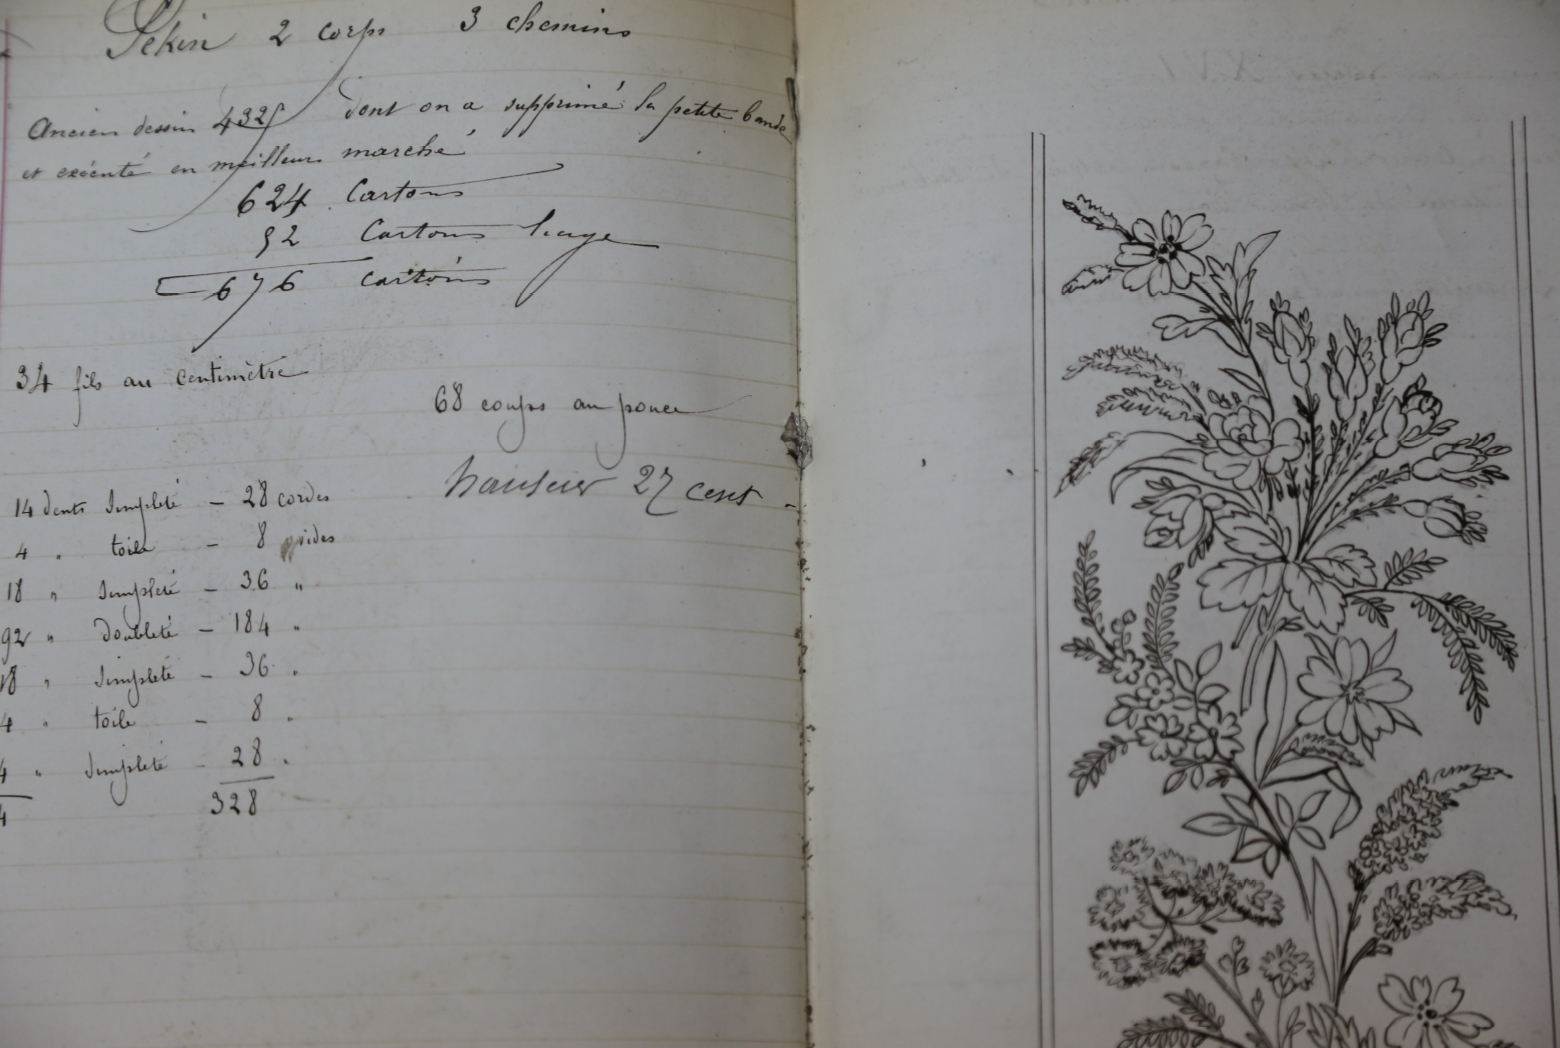 Pékin 2 corps 3 chemins
Ancien dessin 4325 dont on a supprimé la petite bande
et exécuté en meilleur marché
624 Cartons
52 Cartons liage
676 cartons
34 fils au centimètre
68 coups au pouce
hauteur 27 cent
14 dents Simpleté - 28 cordes
4 " toile - 8 vides
18 " Simpleté - 36 "
92 " Doubleté - 184 "
18 " Simpleté - 36 "
4 " toile - 8 "
4 " Simpleté - 28 "
4 328